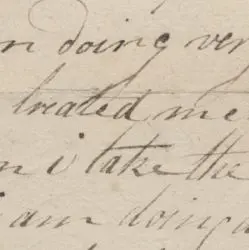 n doing ver
treated me
n i take the
i am doing a